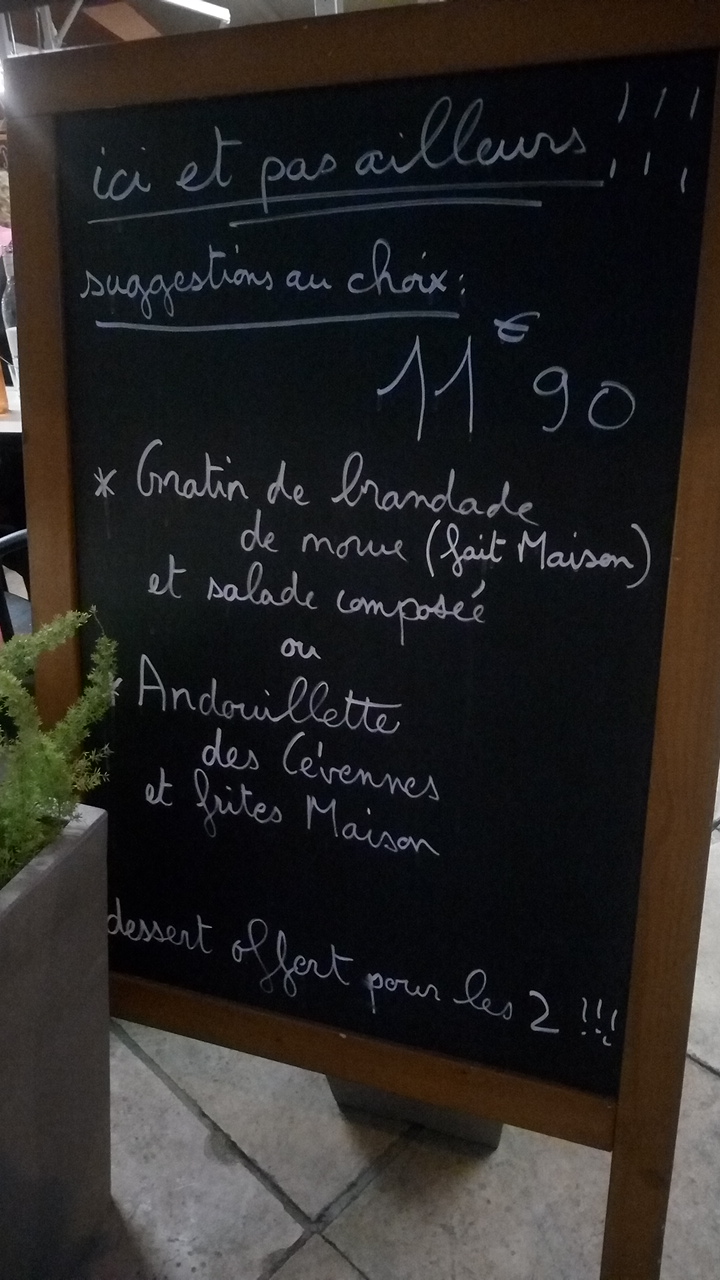 ici et pas ailleurs !!!
suggestions au choix :
11€90
* Gratin de brandade
de morue (fait Maison)
et salade composée
ou
* Andouillette
des Cévennes
et frites Maison
dessert offert pour les 2 !!!